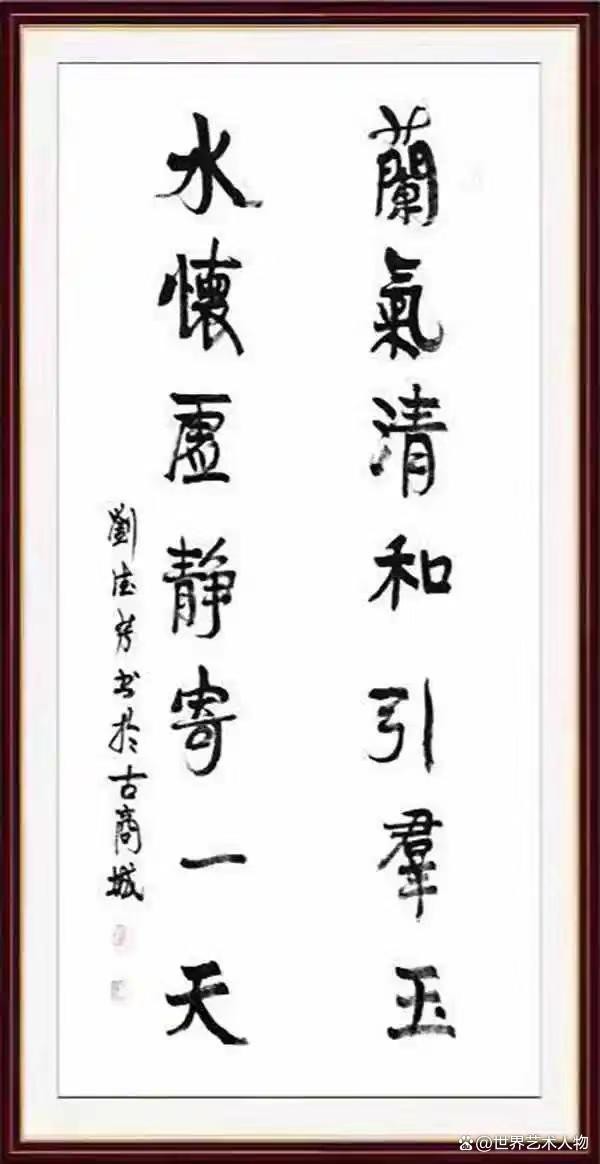 蘭氣清和引羣玉
水懷虛靜寄一天
劉德芳书於古商城
@世界艺术人物